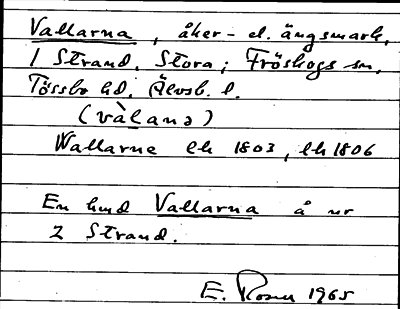 Vallarna, åker- el. ängsmark,
1 Strand, Stora; Fröskogs sn,
Tössbo hd. Älvsb. l.
(vàlana)
Wallarne lh 1803, lh 1806
En lund Vallarna å nr
2 Strand.
E. Rosen 1965